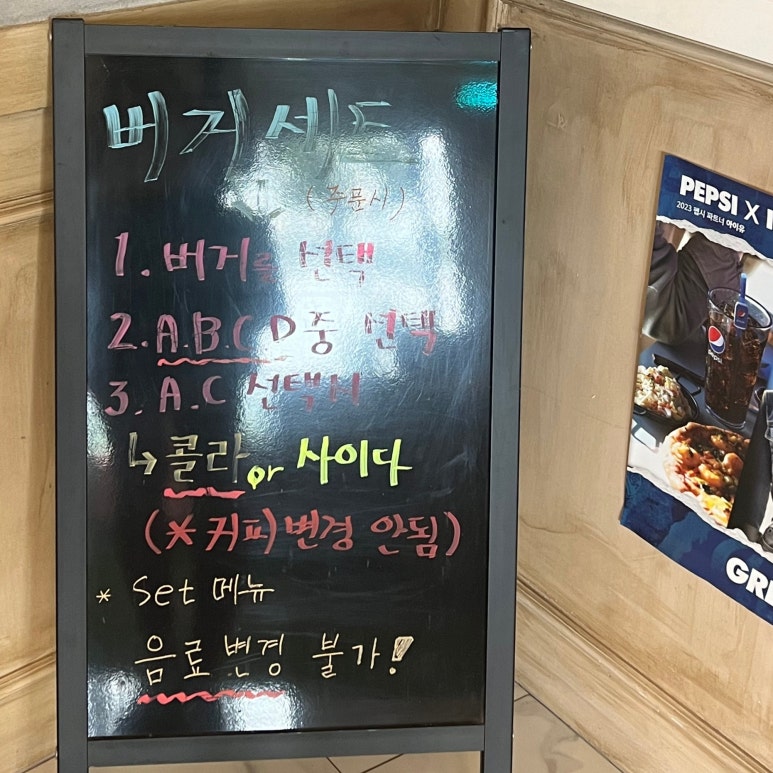 버거세트
(주문시)
1. 버거를 선택
2. A.B.C D 중 선택
3. A.C 선택시
↳ 콜라 or 사이다
(* 커피) 변경 안됨)
* set 메뉴
음료변경 불가!
PEPSI X
2023 펩시 파트너 아이유
pepsi
GRE